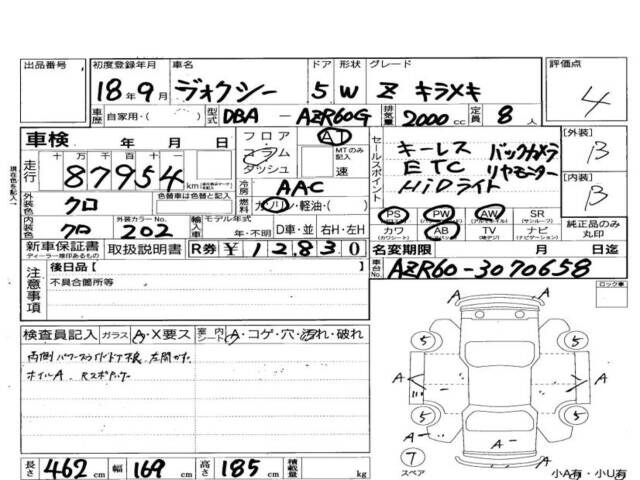 出品番号
初度登録年月 車名 ドア 形状 グレード 評価点
18年9月 ヴォクシー 5 W Z キラメキ 4
車歴 自家用・( ) 型式 DBA - AZR60G 排気量 2000 cc 定員 8 人
車検 年 月 日
フロア コラム ダッシュ AT MTのみ記入 速
現在色を記入。
走行 十万 万 千 百 十 一
87954 km
冷房 AAC
燃料 ガソリン・軽油・( )
セールスポイント
キーレス バックカメラ
ETC リヤモニター
HiDライト
【外装】 B
【内装】 B
外装色 クロ
内装色 クロ 外装カラーNo. 202
輸入車 モデル年式 年・不明 D車・並 右H・左H
PS PW AW SR
(パワステ) (パワーウィンド) (アルミホイル) (サンルーフ)
カワ AB TV ナビ
(カワシート) (エアバック) (地デジ) (ナビゲーション)
純正品のみ丸印
新車保証書 取扱説明書 R券 ¥12830
ディーラー捺印あるもの
名変期限 月 日迄
車台No. AZR60-3070658
注意事項
後日品【 】
不具合箇所等
ロック車
検査員記入 ガラス A・X要ス 室内シート A・コゲ・穴・汚れ・破れ
両側パワースライドドア
ホイルA
A
A
5 5
A A
A
5 5
A A
A
7
スペア
A
長さ 462 cm 幅 169 cm 高さ 185 cm 積載量 kg
小A有・小U有